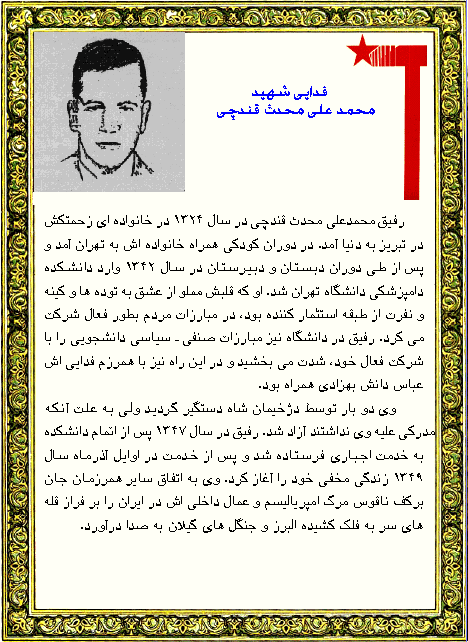 فدایی شهید
محمد علی محدث قندچی
رفیق محمدعلی محدث قندچی در سال ۱۳۲۴ در خانواده ای زحمتکش
در تبریز به دنیا آمد. در دوران کودکی همراه خانواده اش به تهران آمد و
پس از طی دوران دبستان و دبیرستان در سال ۱۳۴۲ وارد دانشکده
دامپزشکی دانشگاه تهران شد. او که قلبش مملو از عشق به توده ها و کینه
و نفرت از طبقه استثمار کننده بود، در مبارزات مردم بطور فعال شرکت
می کرد. رفیق در دانشگاه نیز مبارزات صنفی ـ سیاسی دانشجویی را با
شرکت فعال خود، شدت می بخشید و در این راه نیز با همرزم فدایی اش
عباس دانش بهزادی همراه بود.
وی دو بار توسط دژخیمان شاه دستگیر گردید ولی به علت آنکه
مدرکی علیه وی نداشتند آزاد شد. رفیق در سال ۱۳۴۷ پس از اتمام دانشکده
به خدمت اجباری فرستاده شد و پس از خدمت در اوایل آذرماه سال
۱۳۴۹ زندگی مخفی خود را آغاز کرد. وی به اتفاق سایر همرزمان جان
برکف ناقوس مرگ امپریالیسم و عمال داخلی اش در ایران را بر فراز قله
های سر به فلک کشیده البرز و جنگل های گیلان به صدا درآورد.